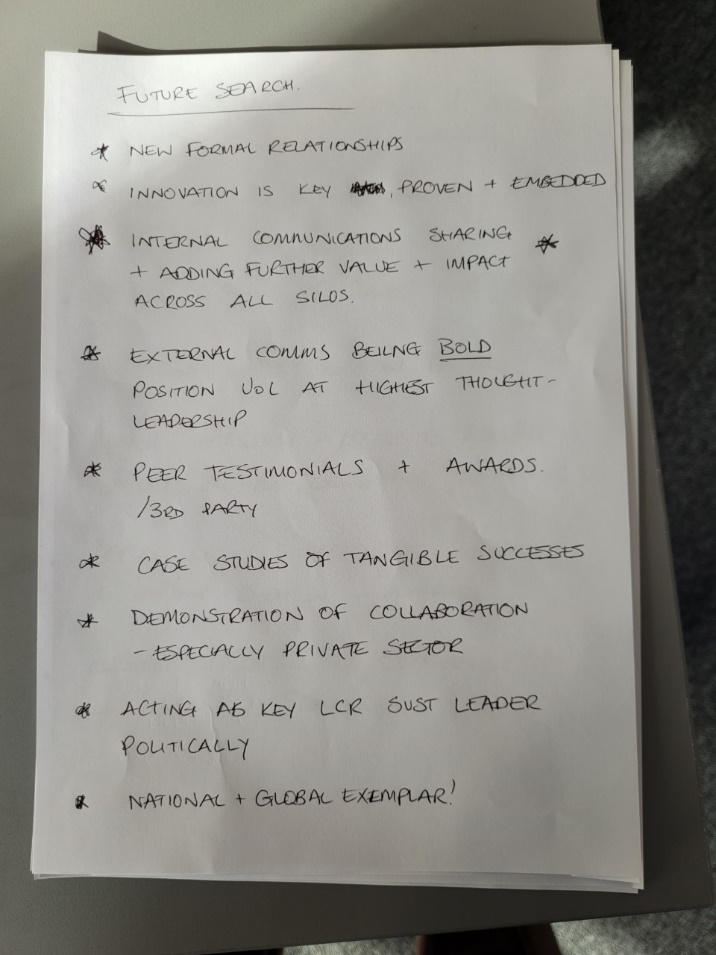 FUTURE SEARCH.
* NEW FORMAL RELATIONSHIPS
* INNOVATION IS KEY , PROVEN + EMBEDDED
* INTERNAL COMMUNICATIONS SHARING *
+ ADDING FURTHER VALUE + IMPACT
ACROSS ALL SILOS.
* EXTERNAL COMMS BEING BOLD
POSITION UOL AT HIGHEST THOUGHT-
LEADERSHIP
* PEER TESTIMONIALS + AWARDS.
/3RD PARTY
* CASE STUDIES OF TANGIBLE SUCCESSES
* DEMONSTRATION OF COLLABORATION
- ESPECIALLY PRIVATE SECTOR
* ACTING AS KEY LCR SUST LEADER
POLITICALLY
* NATIONAL + GLOBAL EXEMPLAR!